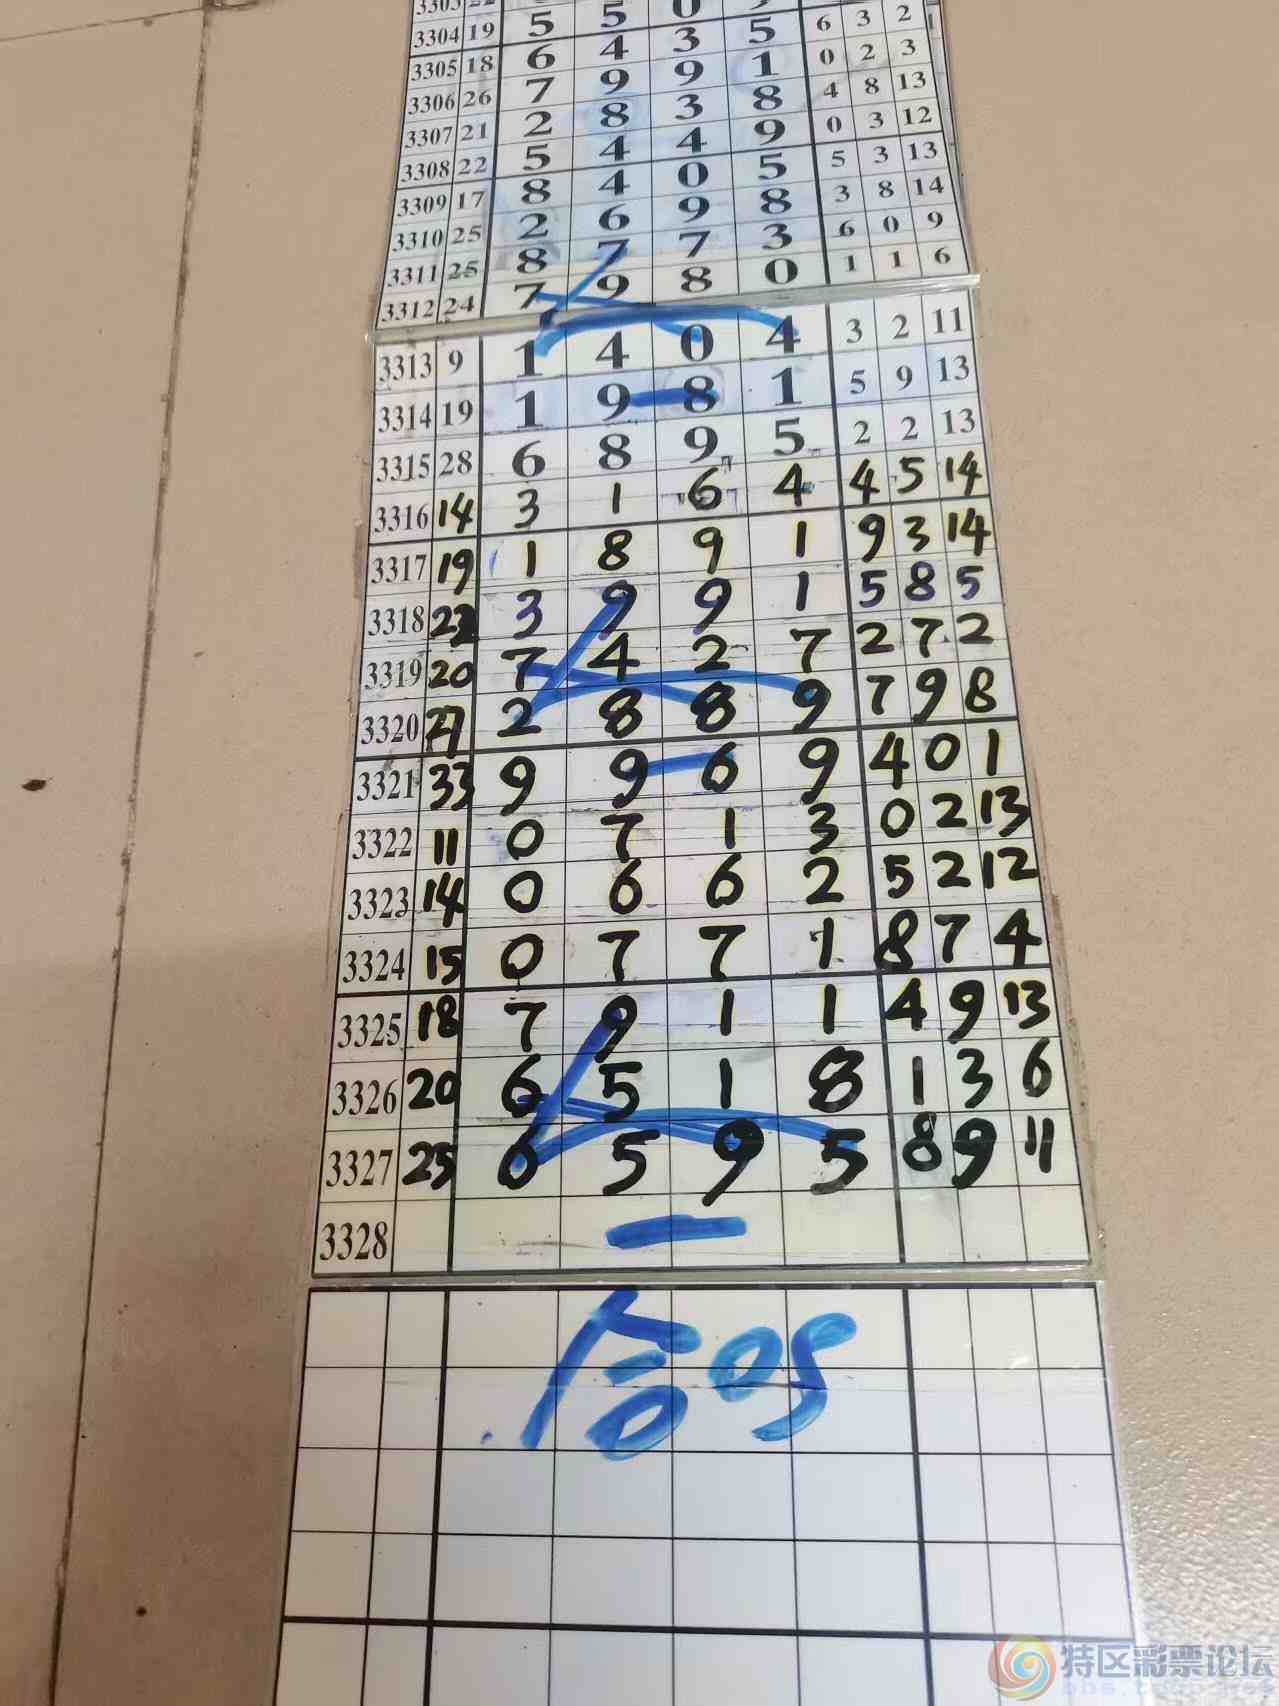 3304 19 5 5 0 5 6 3 2
3305 18 6 4 3 5 0 2 3
3306 26 7 9 9 1 4 8 13
3307 21 2 8 3 8 0 3 12
3308 22 5 4 4 9 5 3 13
3309 17 8 4 0 5 3 8 14
3310 25 2 6 9 8 6 0 9
3311 25 8 7 7 3 1 1 6
3312 24 7 9 8 0
3313 9 1 4 0 4 3 2 11
3314 19 1 9 8 1 5 9 13
3315 28 6 8 9 5 2 2 13
3316 14 3 1 6 4 4 5 14
3317 19 1 8 9 1 9 3 14
3318 22 3 9 9 1 5 8 5
3319 20 7 4 2 7 2 7 2
3320 27 2 8 8 9 7 9 8
3321 33 9 9 6 9 4 0 1
3322 11 0 7 1 3 0 2 13
3323 14 0 6 6 2 5 2 12
3324 15 0 7 7 1 8 7 4
3325 18 7 9 1 1 4 9 13
3326 20 6 5 1 8 1 3 6
3327 25 6 5 9 5 8 9 11
3328
合05
特区彩票论坛